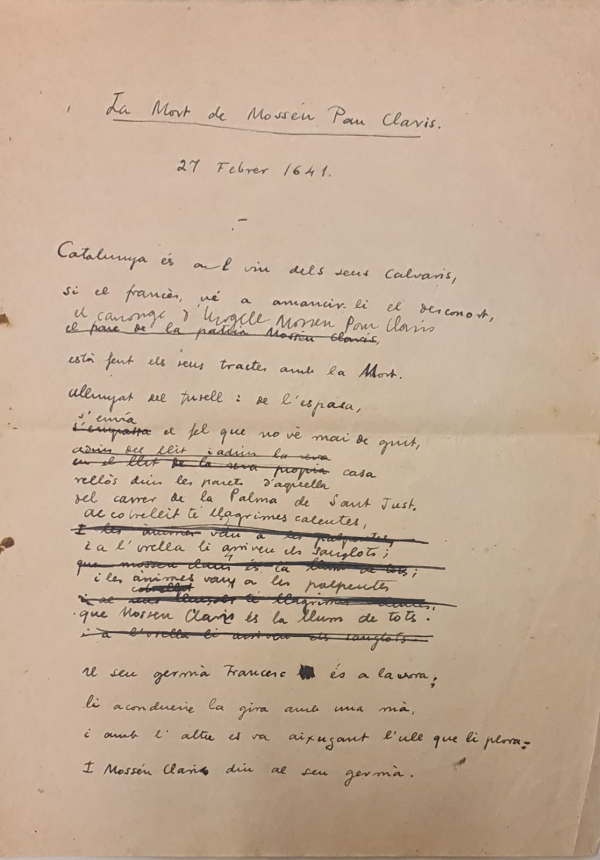 La Mort de Mossén Pau Claris.
27 Febrer 1641.
Catalunya és al viu dels seus Calvaris,
si el francès, vé a amancir-li el desconort,
el canonge d'Urogell Mossen Pau Claris
el pare de la pàtria Mossèn Claris,
està fent els seus tractes amb la Mort.
Allunyat del fusell i de l'espasa,
s'envia
s'empassa el fel que no vè mai de gust,
adins del llit i adins la seva
en el llit de la seva propia casa
reclòs dins les parets d'aquella
del carrer de la Palma de Sant Just.
Al cobrellit té llagrimes calentes,
I les ànimes van a les palpentes
i a l'orella li arriven els sanglots;
que mossen Claris és la llum de tots;
i les ànimes van a les palpentes
cobrellit
i al seus llençols té llagrimes calentes,
que Mossen Claris és la llum de tots.
i a l'orella li arriven els sanglots.
El seu germà Francesc és a la vora;
li acondueix la gira amb una mà,
i amb l'altre es va aixugant l'ull que li plora.
I Mossén Claris diu al seu germà.